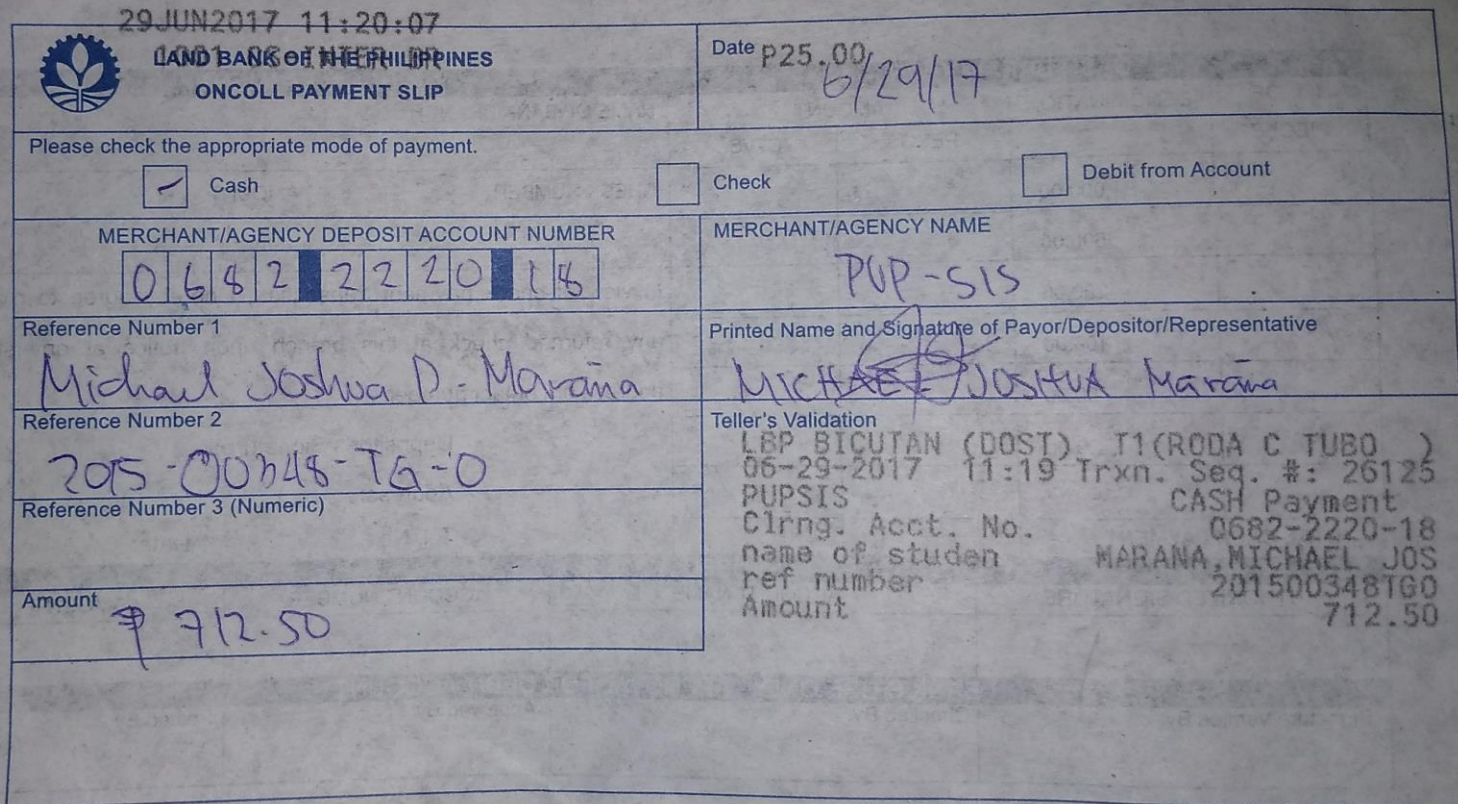 29JUN2017 11:20:07
LAND BANK OF THE PHILIPPINES
ONCOLL PAYMENT SLIP
Date P25.00
6/29/17
Please check the appropriate mode of payment.
Cash
Check
Debit from Account
MERCHANT/AGENCY DEPOSIT ACCOUNT NUMBER
0682 2220 18
MERCHANT/AGENCY NAME
PUP-SIS
Reference Number 1
Michael Joshua D. Maraña
Printed Name and Signature of Payor/Depositor/Representative
MICHAEL JOSHUA Maraña
Reference Number 2
2015-00348-TG-0
Reference Number 3 (Numeric)
Amount
₱ 712.50
Teller's Validation
LBP BICUTAN (DOST) T1(RODA C TUBO )
06-29-2017 11:19 Trxn. Seq. #: 26125
PUPSIS CASH Payment
Clrng. Acct. No. 0682-2220-18
name of studen MARANA,MICHAEL JOS
ref number 201500348TG0
Amount 712.50